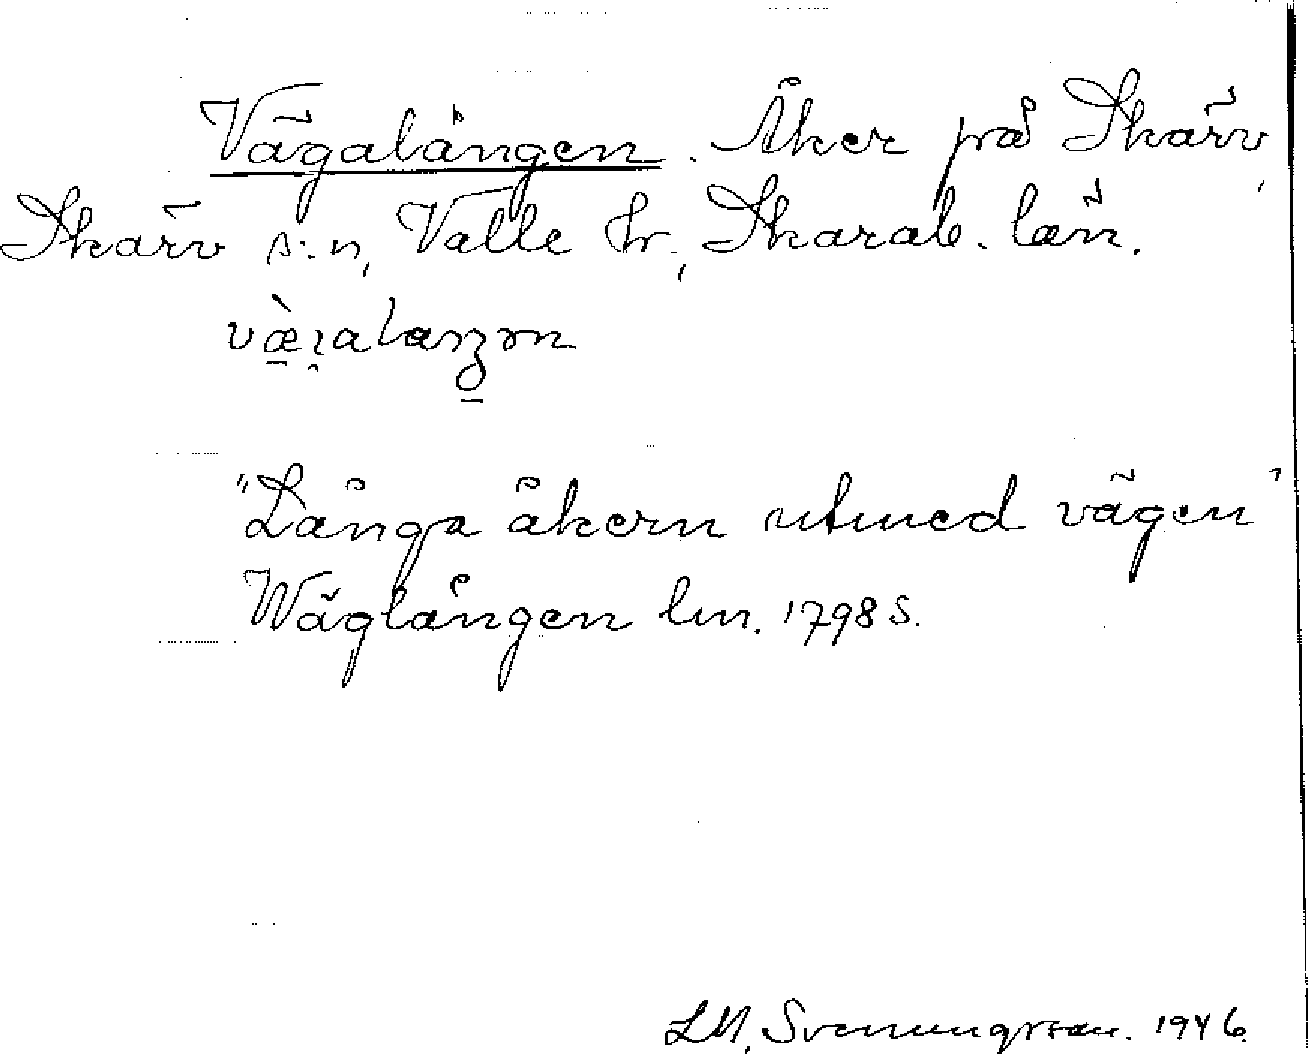 Vägalången. Åker på Skärv,
Skärv s:n, Valle hr, Skarab. län.
"Långa åkern utmed vägen"
Wäglången lm. 1798 S.
LM. Svenungsson. 1946.